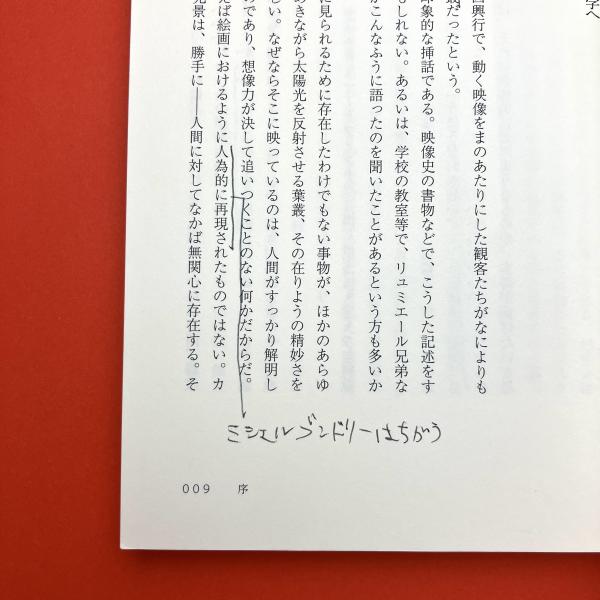 字へ
回興行で、動く映像をまのあたりにした観客たちがなによりも
だったという。
印象的な挿話である。映像史の書物などで、こうした記述をす
もしれない。あるいは、学校の教室等で、リュミエール兄弟な
がこんなふうに語ったのを聞いたことがあるという方も多いか
に見られるために存在したわけでもない事物が、ほかのあらゆ
めきながら太陽光を反射させる葉叢、その在りようの精妙さを
しい。なぜならそこに映っているのは、人間がすっかり解明し
のであり、想像力が決して追いつくことのない何かだからだ。
えば絵画におけるように人為的に再現されたものではない。カ
光景は、勝手に――人間に対してなかば無関心に存在する。そ
ミシェルゴンドリーはちがう
009 序